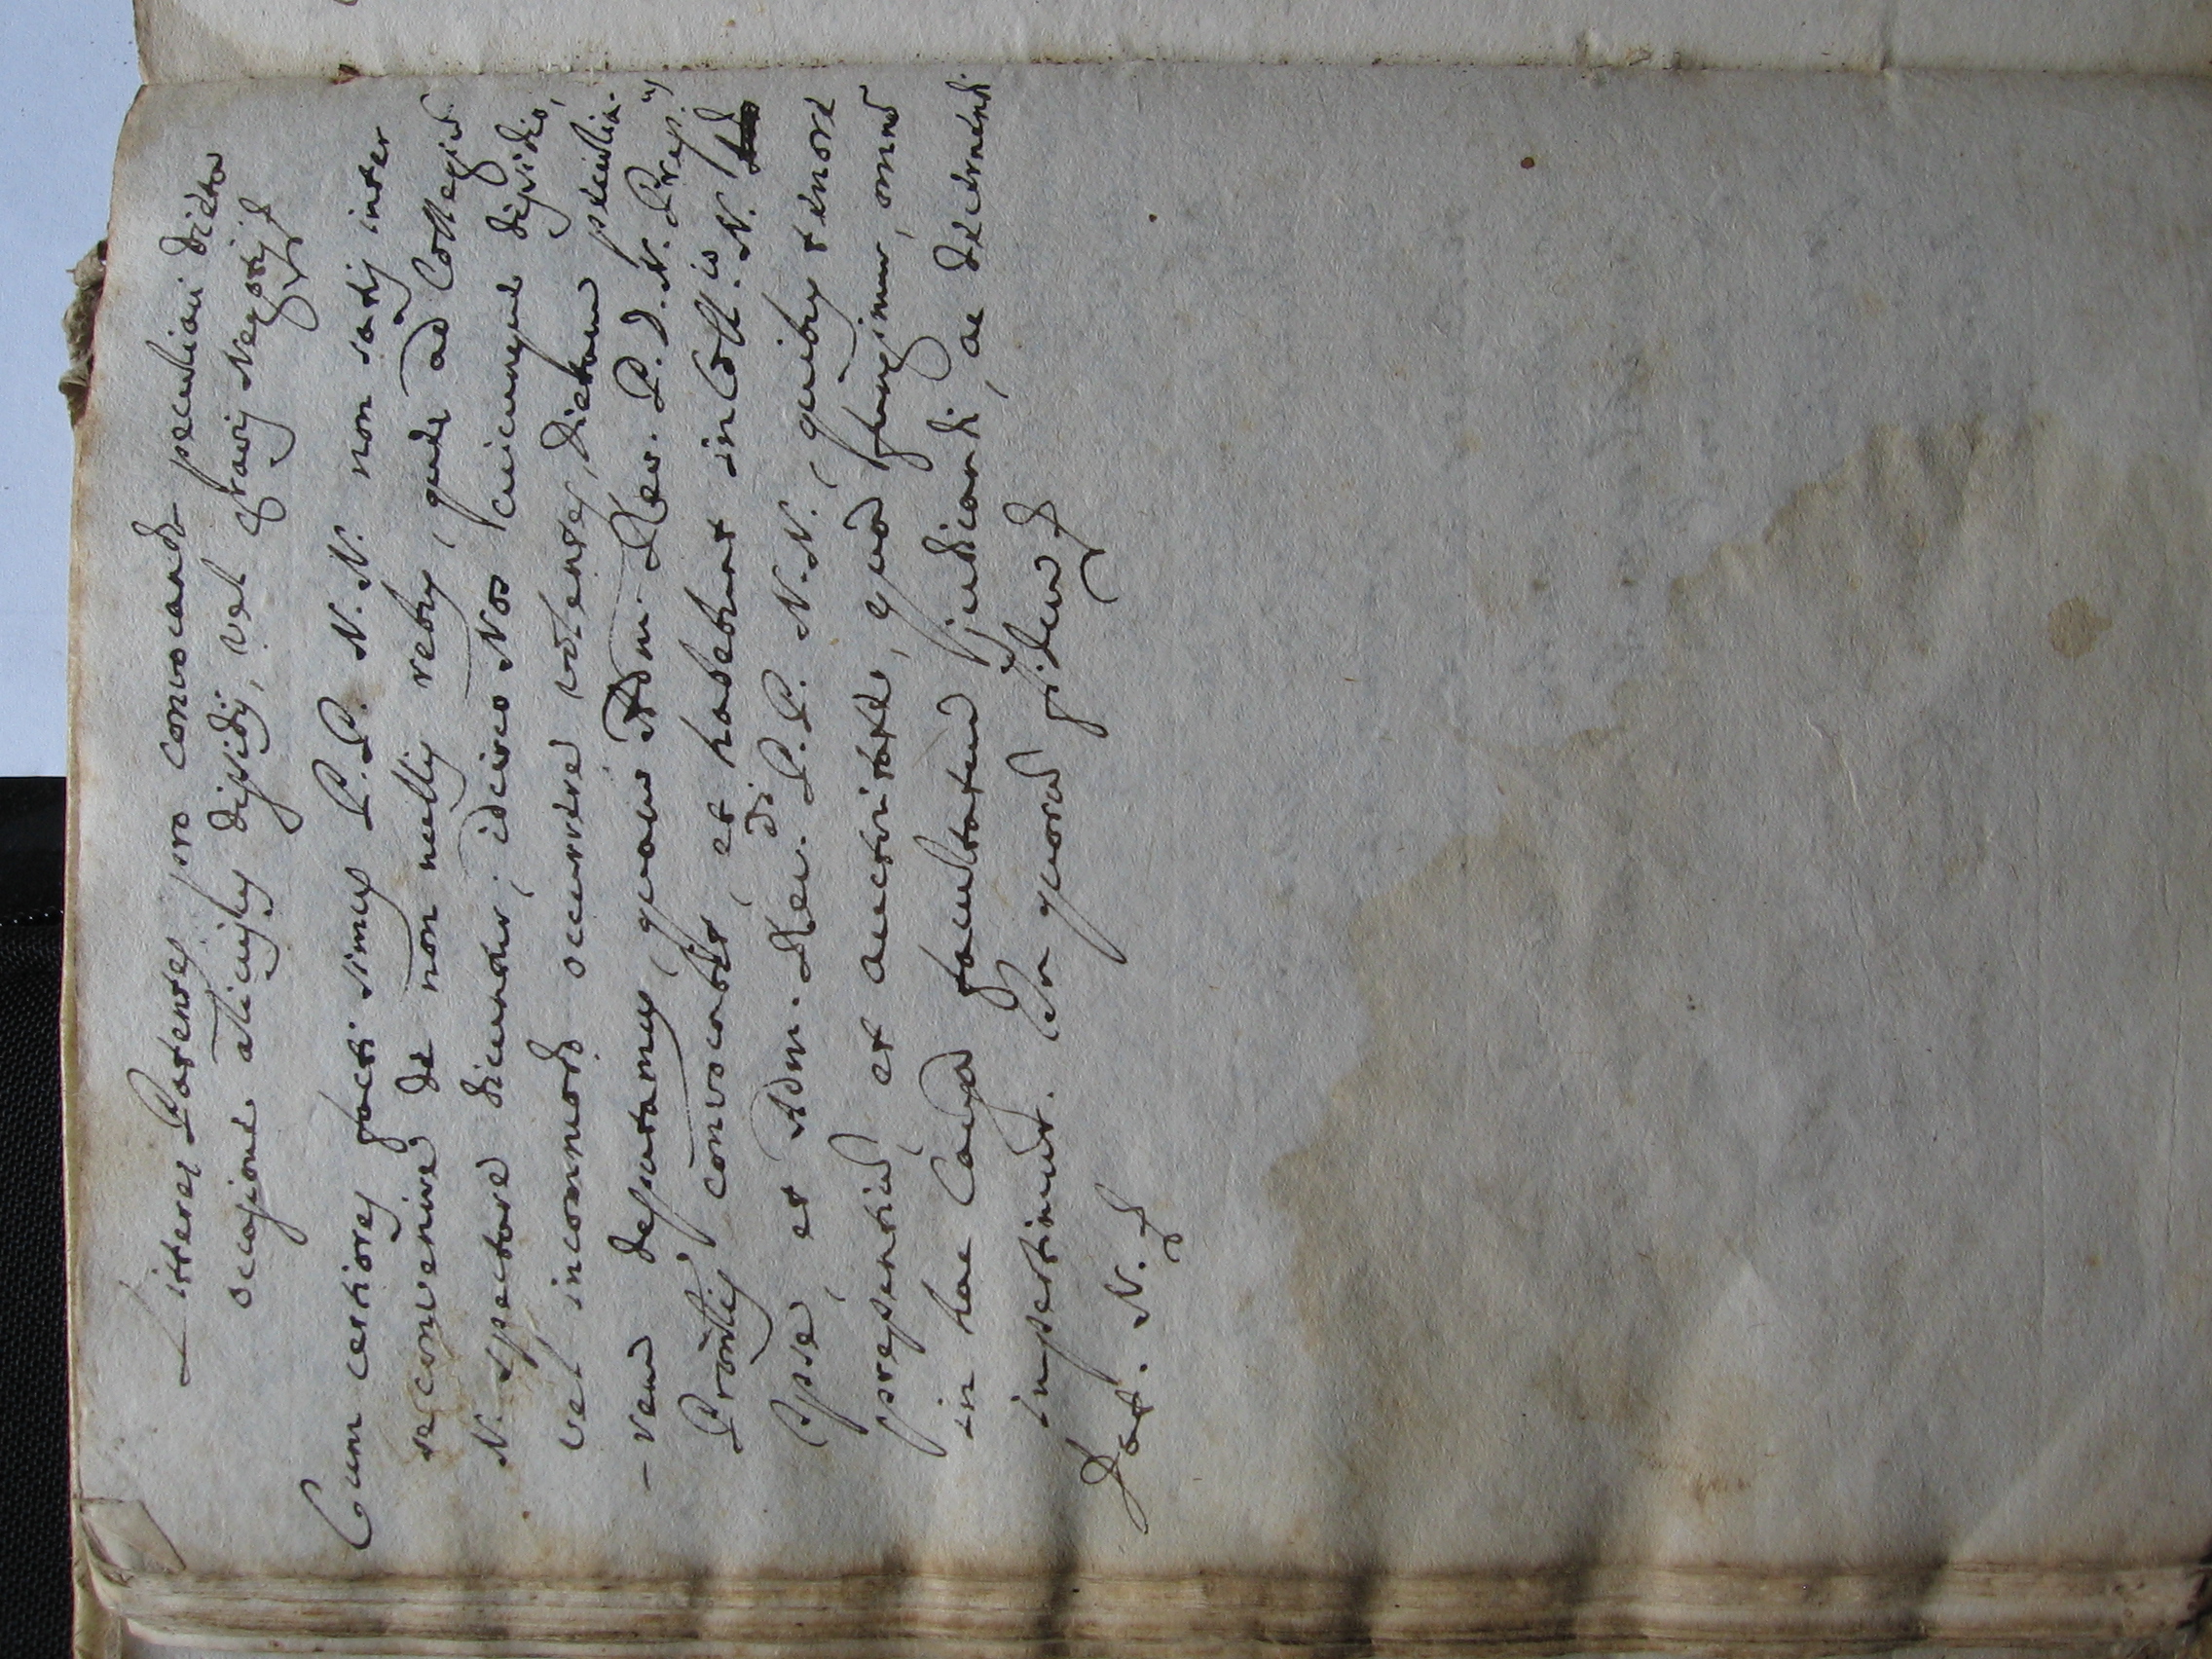 Litteræ Patentes pro convocanda peculiari dieta
occasione alicujus dissidij, vel gravis Negotij
Cum certiores facti simus P.P. N. N. non satis inter
se convenire de non nullis rebus, quæ ad Collegium
N. spectare dicuntur; idcirco Nos cuicumque dissidio,
vel incommodo occurrere volentes, dietam peculia-
-rem deputamus, quam Adm. Rev. P. D. N. Præp.us
Prov.lis convocabit, et habebunt in Coll.is N.
Ipse, et Adm. Rev.di P.P. N. N., quibus tenore
præsentium, et auctoritate, qua fungimur, omnem
in hac Causa facultatem judicandi, ac decernendi
impertimur. In quorum fidem
Dat. N.